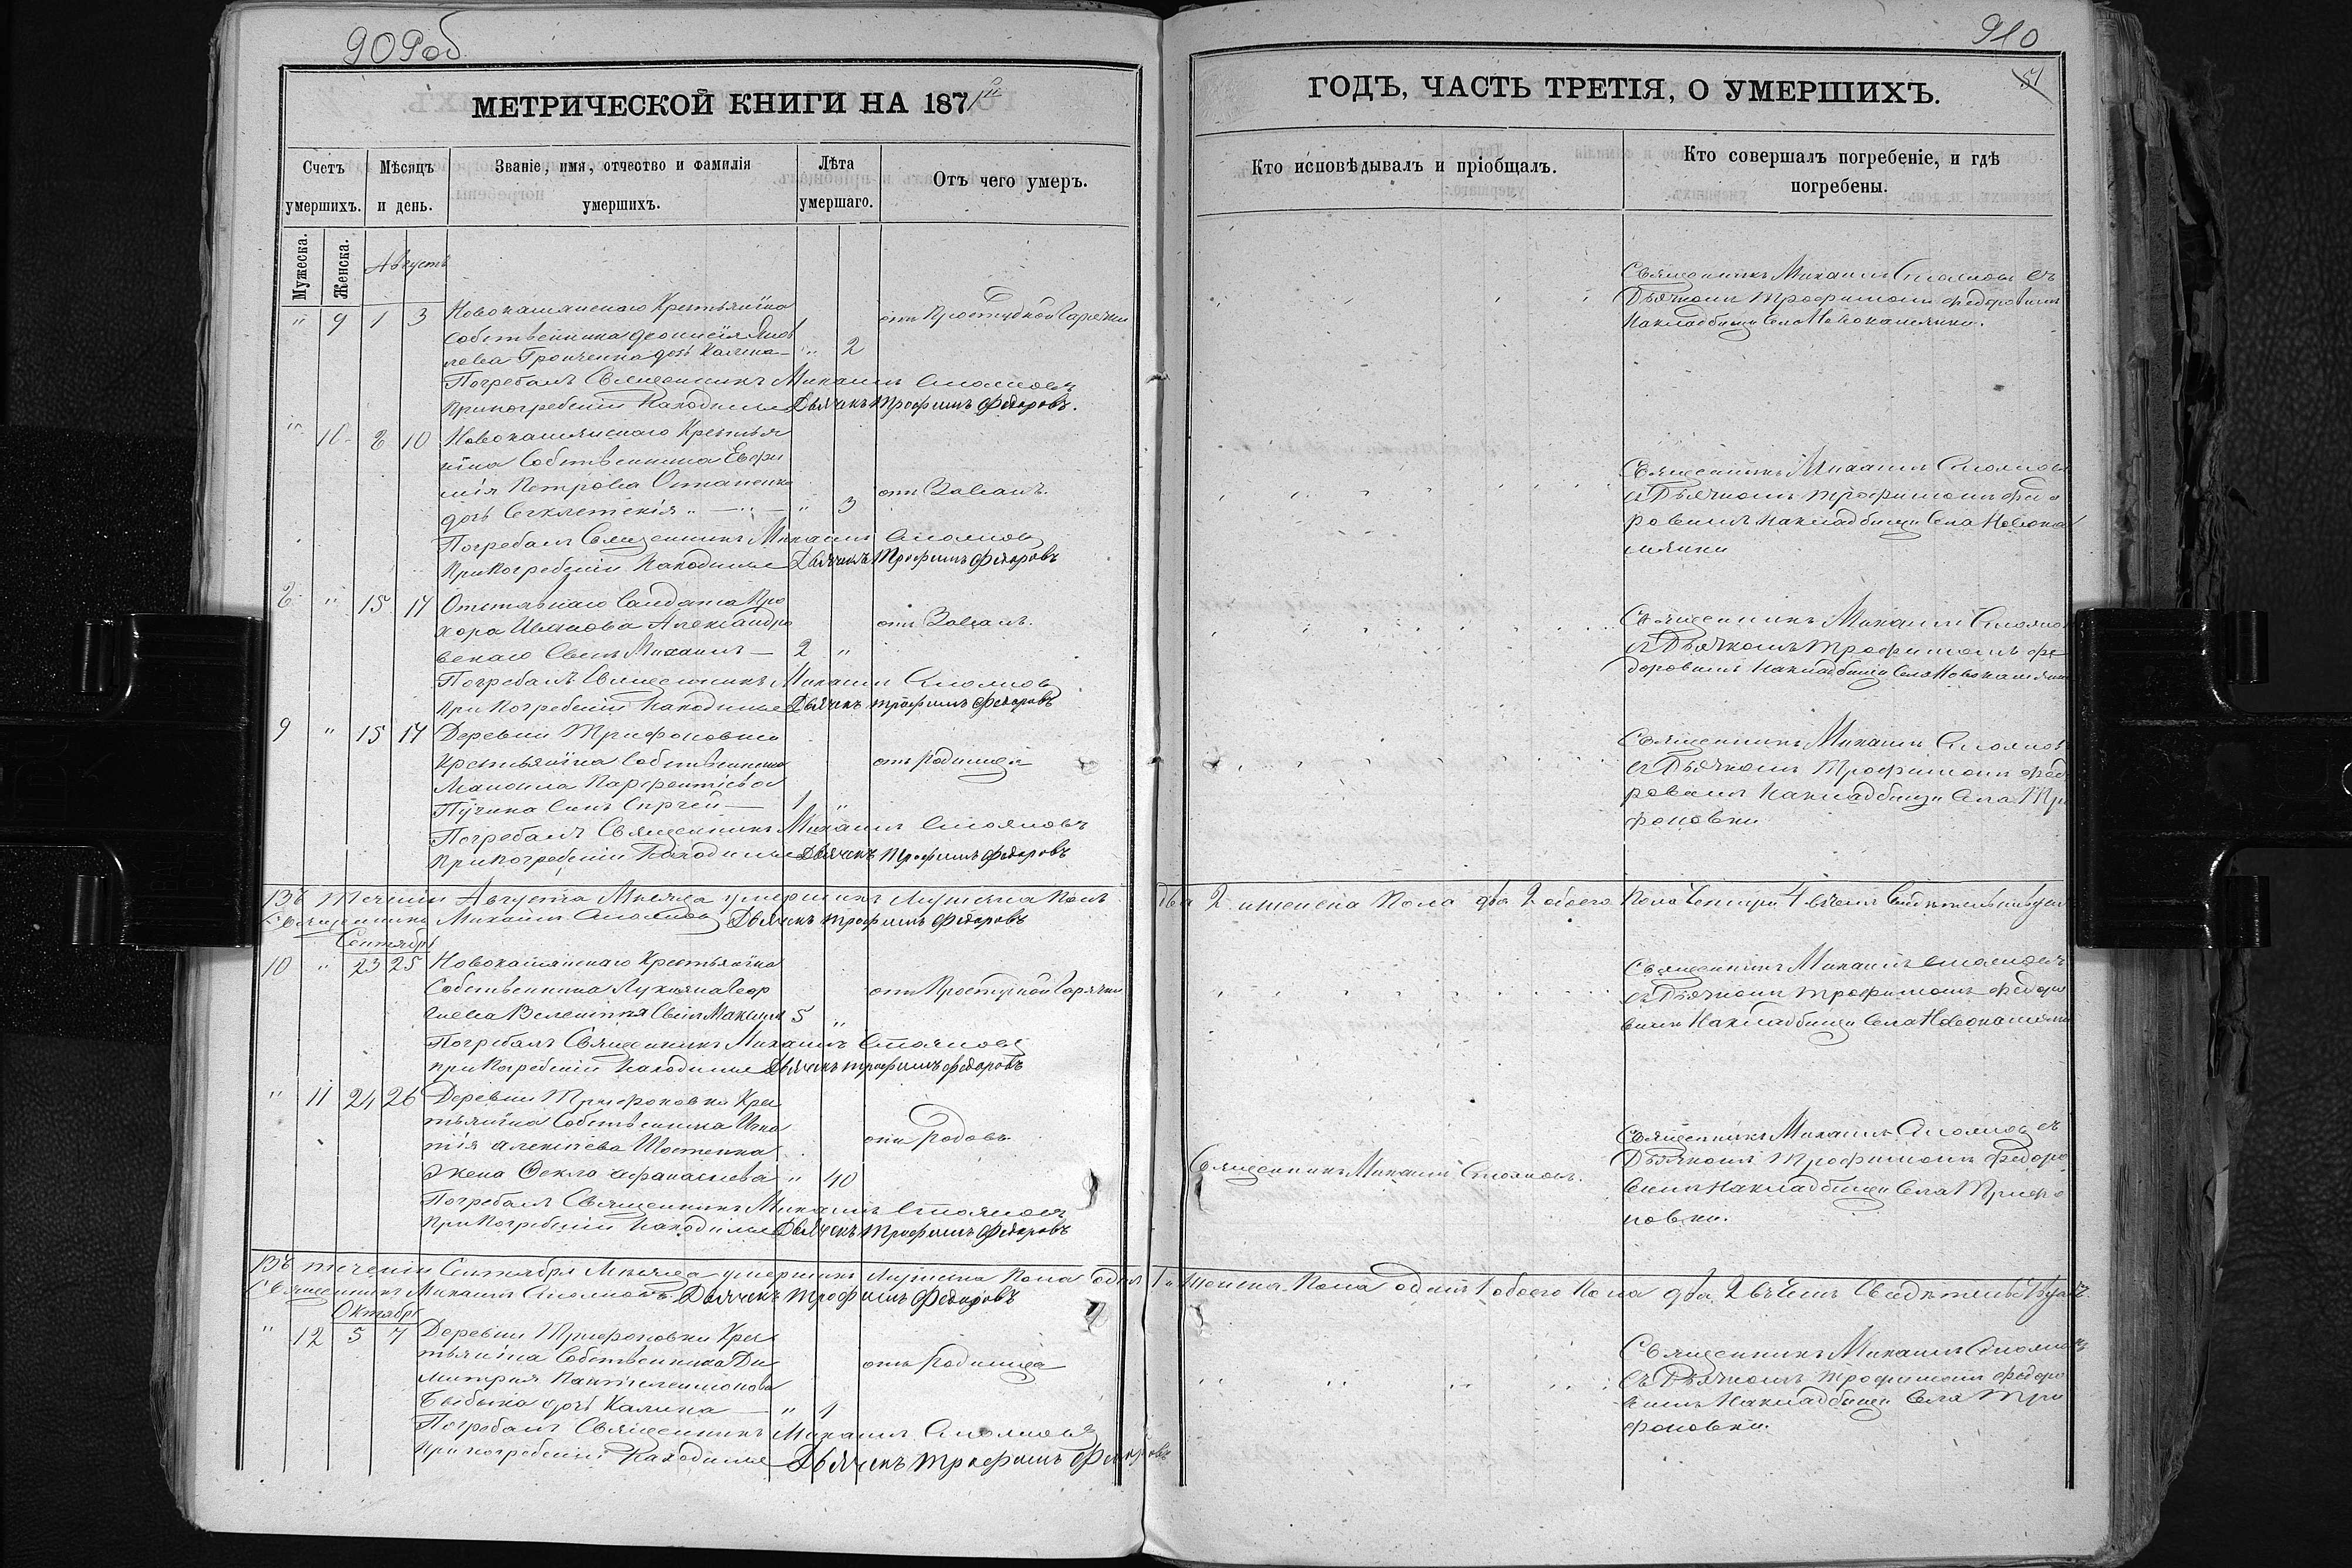 909об
МЕТРИЧЕСКОЙ КНИГИ НА 1871й
Счетъ умершихъ.
Мѣсяцъ и день.
Званіе, имя, отчество и фамилія умершихъ.
Лѣта умершаго.
Отъ чего умеръ.
Мужеска.
Женска.
Августъ
" 9 1 3 Новокамянскаго Крестьянина
собственника
дочь " 2
отъ Простудной Горячки
Погребалъ Священникъ Михаилъ Стояновъ
При погребеніи Находился Дьячекъ Трофимъ Федоровъ.
" 10 8 10 Новокамянскаго Крестья
нина Собственника Евфи
мія Петрова
дочь " 3
отъ
Погребалъ Священникъ Михаилъ Стояновъ
При Погребеніи Находился Дьячекъ Трофимъ Федоровъ
8 " 15 17 Отставнаго Салдата Про
хора Иванова Александро
вскаго Сынъ Михаилъ — 2 "
отъ
Погребалъ Священникъ Михаилъ Стояновъ
При Погребеніи Находился Дьячекъ Трофимъ Федоровъ
9 " 15 17 Деревни Трифоновки
Крестьянина Собственника
Мануила Парфентіева
Сынъ Сергей — 1 "
отъ Родимца
Погребалъ Священникъ Михаилъ Стояновъ
При погребеніи Находился Дьячекъ Трофимъ Федоровъ
Въ теченіи Августа Мѣсяца умершихъ Мужеска Пола
Священникъ Михаилъ Стояновъ Дьячекъ Трофимъ Федоровъ
Сентябрь
10 " 23 25 Новокамянскаго Крестьянина
Собственника Лукьяна Геор
гіева Сынъ Максимъ 5 "
отъ Простудной Горячки
Погребалъ Священникъ Михаилъ Стояновъ
при Погребеніи Находился Дьячекъ Трофимъ Федоровъ
" 11 24 26 Деревни Трифоновки Крес
тьянина Собственника Игна
тія Алексѣева
Жена Фекла Афанасіева " 40
отъ Родовъ
Погребалъ Священникъ Михаилъ Стояновъ
При Погребеніи Находился Дьячекъ Трофимъ Федоровъ
Въ теченіи Сентября Мѣсяца умершихъ Мужеска Пола одинъ
Священникъ Михаилъ Стояновъ Дьячекъ Трофимъ Федоровъ
Октябрь
" 12 5 7 Деревни Трифоновки Крес
тьянина Собственника Ди
митрія Пантелеимонова
дочь — " 1
отъ Родимца
Погребалъ Священникъ Михаилъ Стояновъ
При погребеніи Находился Дьячекъ Трофимъ Федоровъ
910
51
ГОДЪ, ЧАСТЬ ТРЕТІЯ, О УМЕРШИХЪ.
Кто исповѣдывалъ и пріобщалъ.
Кто совершалъ погребеніе, и гдѣ погребены.
Священникъ Михаилъ Стояновъ съ
Дьячкомъ Трофимомъ Федоровымъ
На кладбищи Села Новокамянки.
Священникъ Михаилъ Стояновъ
съ Дьячкомъ Трофимомъ Федо
ровымъ На кладбищи Села Новока
мянки
Священникъ Михаилъ Стояновъ
съ Дьячкомъ Трофимомъ Фе
доровымъ На кладбищи Села Новокамянки
Священникъ Михаилъ Стояновъ
съ Дьячкомъ Трофимомъ Федо
ровымъ На кладбищи Села Три
фоновки
два 2 женска Пола два 2 обоего Пола Четыри 4 въ чемъ Свидѣтельствуемъ
Священникъ Михаилъ Стояновъ
съ Дьячкомъ Трофимомъ Федоро
вымъ На кладбищи Села Новокамянки
Священникъ Михаилъ Стояновъ.
Священникъ Михаилъ Стояновъ съ
Дьячкомъ Трофимомъ Федоро
вымъ На кладбищи Села Трифо
новки.
1 Женска Пола одинъ 1 обоего Пола два 2 въ чемъ Свидѣтельствуемъ.
Священникъ Михаилъ Стояновъ
съ Дьячкомъ Трофимомъ Федоро
вымъ На кладбищи Села Три
фоновки.